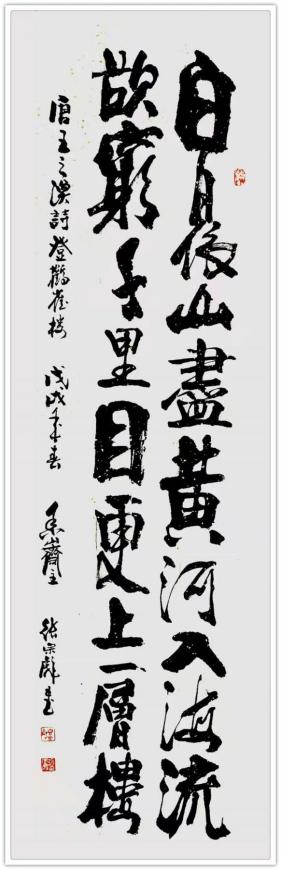 白日依山盡黄河入海流
欲窮千里目更上一層樓
唐王之渙詩登鸛雀楼 戊戌年春 齋主 張宗彪書